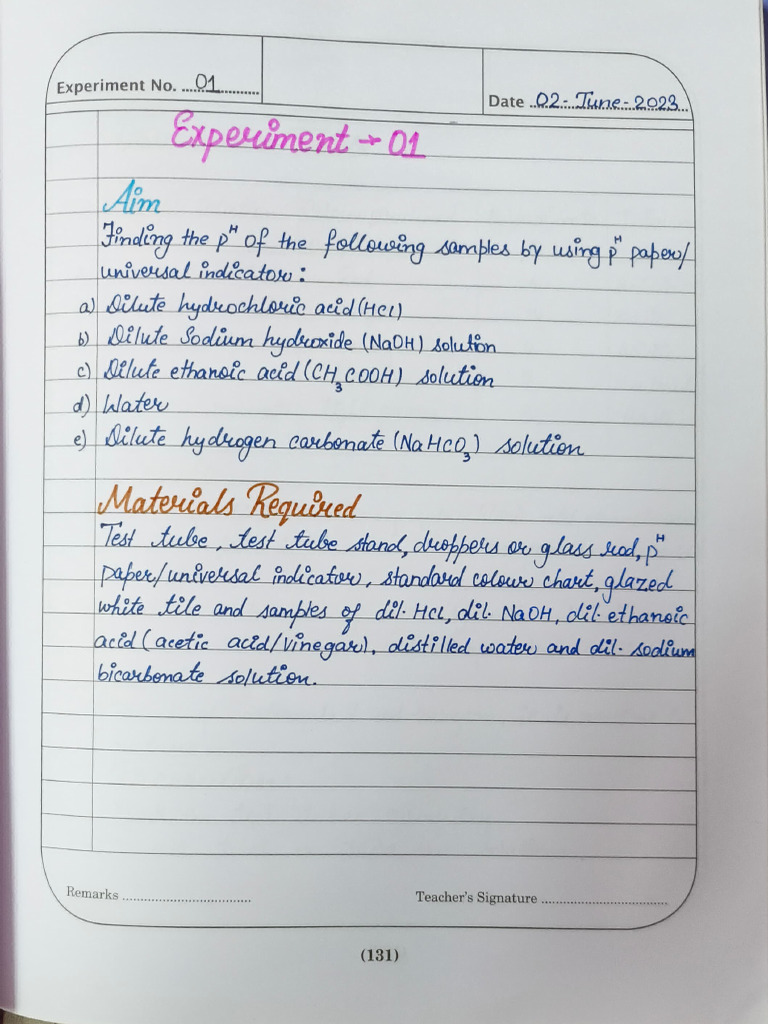 Experiment No. 01
Date 02-June-2023
Experiment → 01
Aim
Finding the pᴴ of the following samples by using pᴴ paper/
universal indicator:
a) Dilute hydrochloric acid (HCl)
b) Dilute Sodium hydroxide (NaOH) solution
c) Dilute ethanoic acid (CH₃COOH) solution
d) Water
e) Dilute hydrogen carbonate (NaHCO₃) solution
Materials Required
Test tube, test tube stand, droppers or glass rod, pᴴ
paper/universal indicator, standard colour chart, glazed
white tile and samples of dil. HCl, dil. NaOH, dil. ethanoic
acid (acetic acid/vinegar), distilled water and dil. sodium
bicarbonate solution.
Remarks
Teacher's Signature
(131)